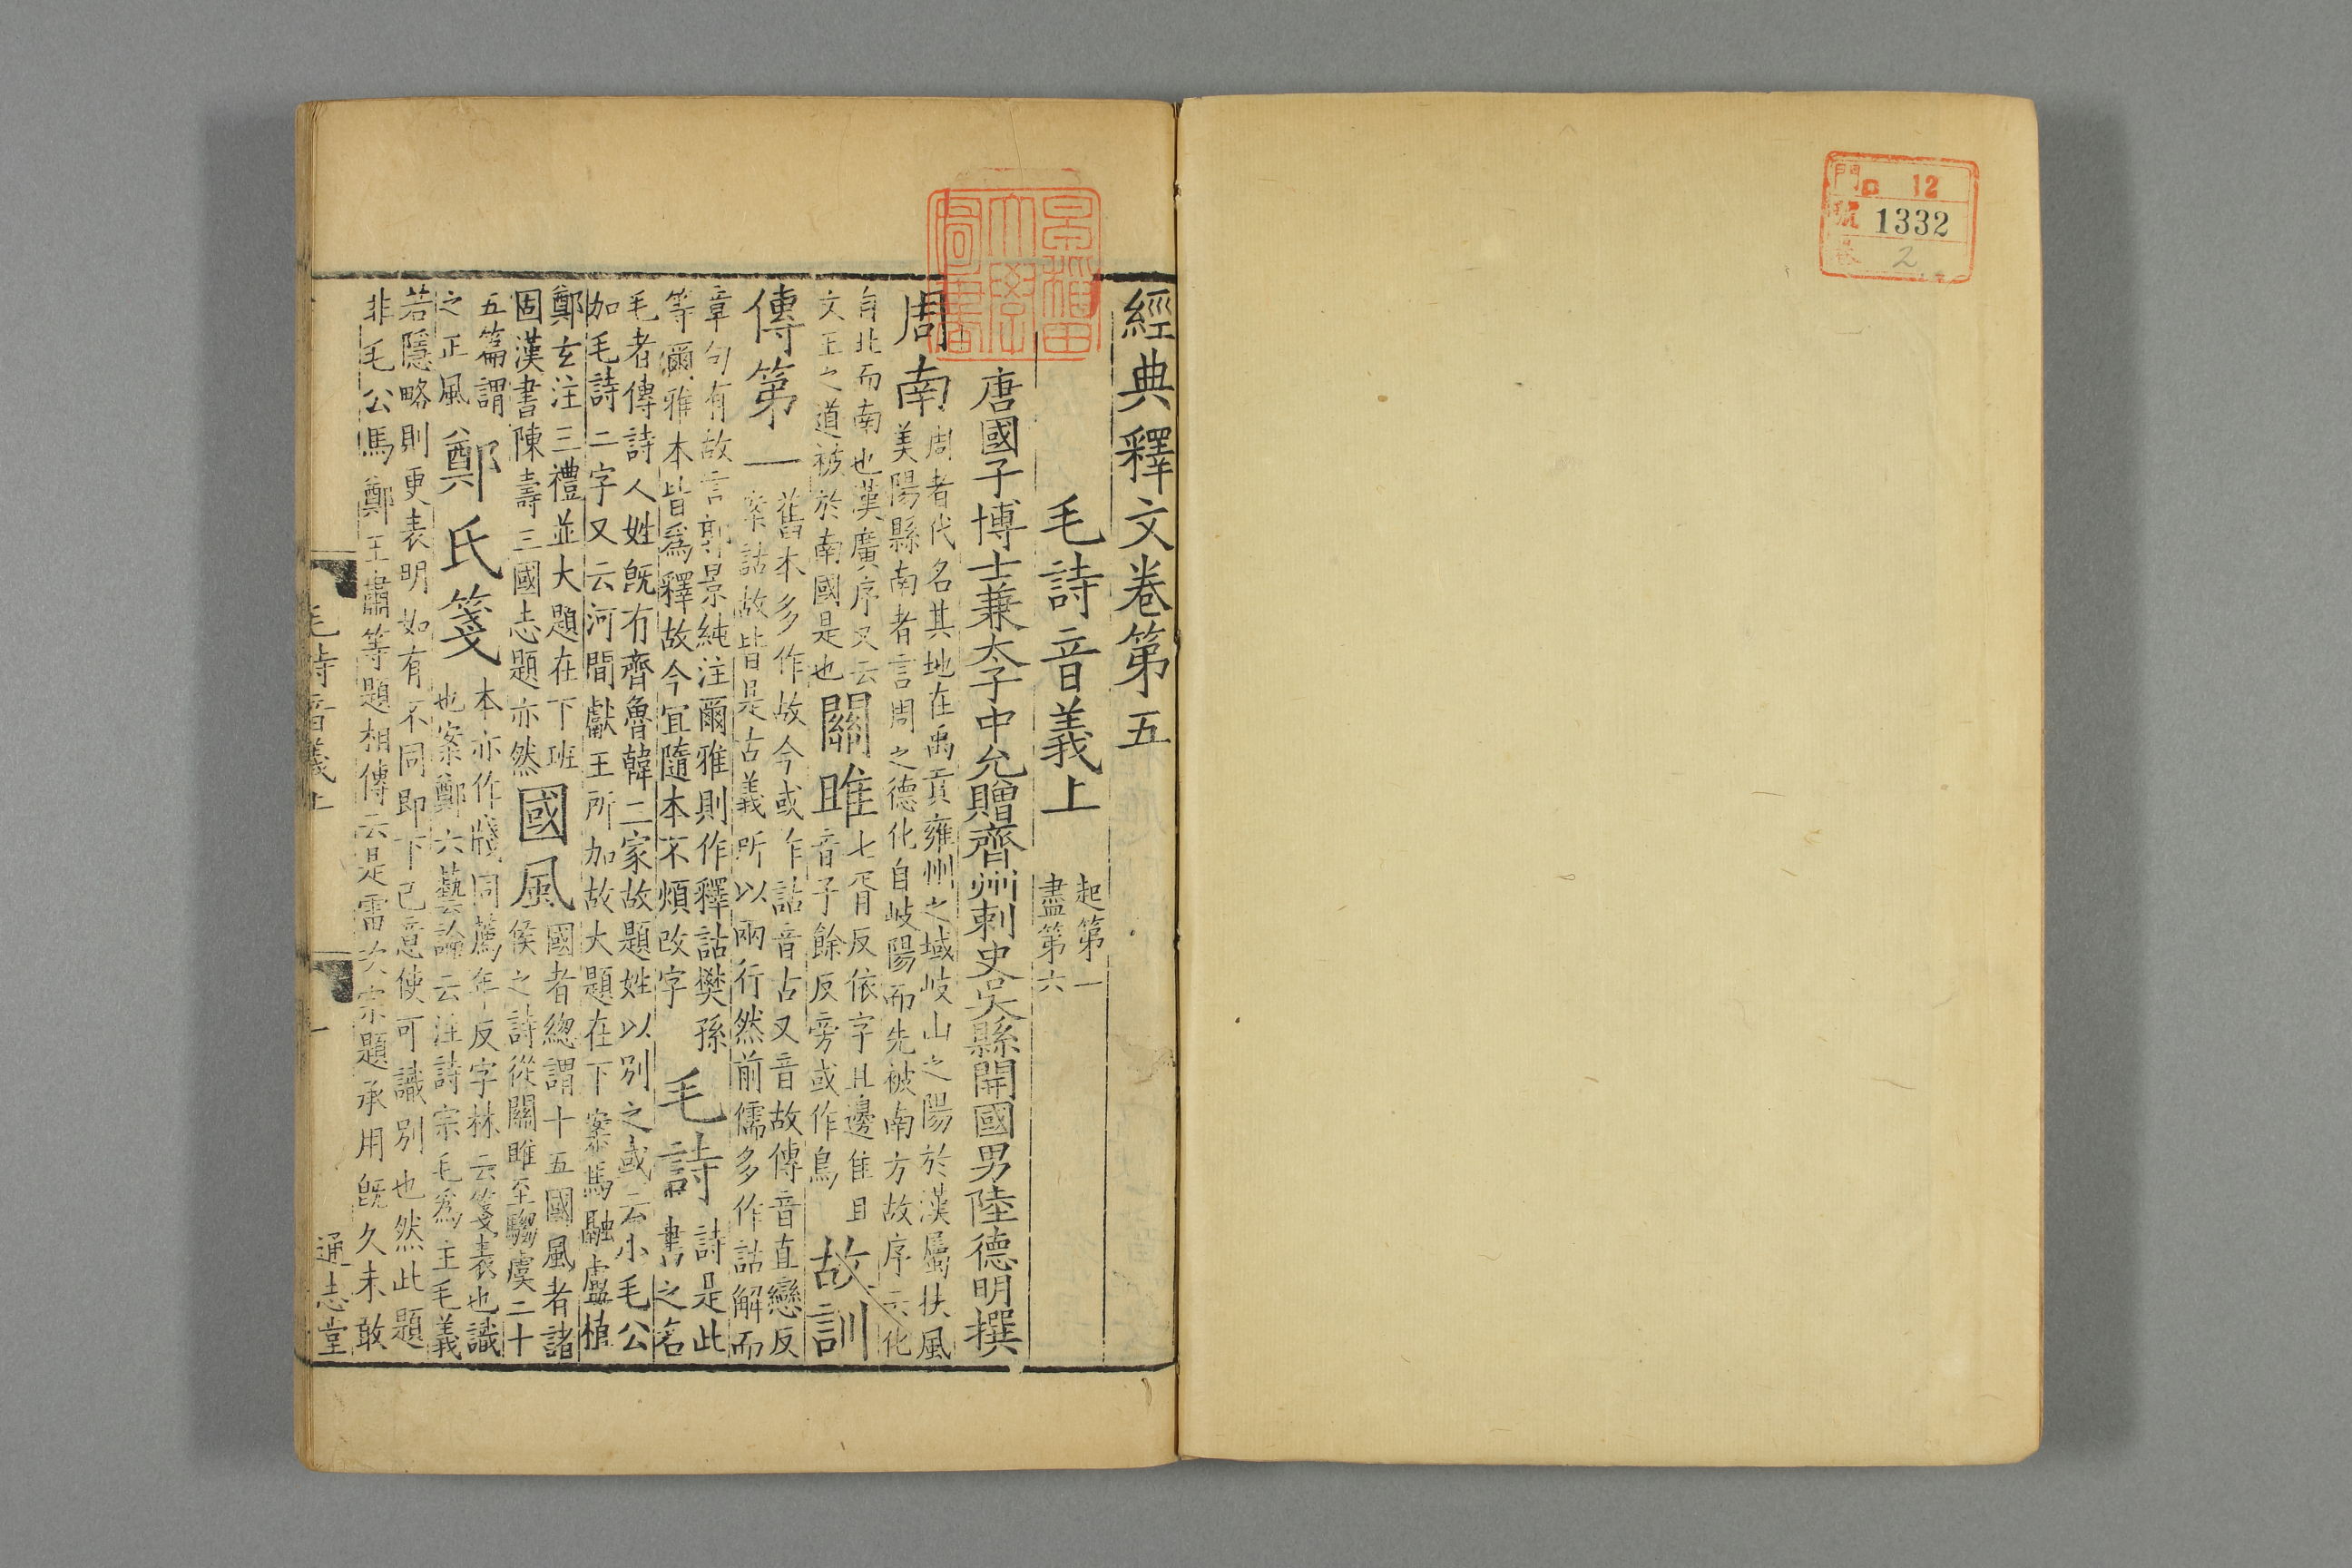 門 ロ 12
號 1332
2
早稲田大學圖書
經典釋文卷第五
毛詩音義上 起第一
盡第六
唐國子博士兼太子中允贈齊州刺史吳縣開國男陸德明撰
周南 周者代名其地在禹貢雍州之域岐山之陽於漢屬扶風
美陽縣南者言周之德化自岐陽而先被南方故序云化
自北而南也漢廣序又云
文王之道被於南國是也
關雎 七胥反依字且邊隹且
音子餘反旁或作鳥
故訓
傳第一 舊本多作故今或作詁音古又音故傳音直戀反
案詁故皆是古義所以兩行然前儒多作詁解而
章句有故言郭景純注爾雅則作釋詁樊孫
等爾雅本皆爲釋故今宜隨本不煩改字
毛詩 詩是此
書之名
毛者傳詩人姓旣有齊魯韓三家故題姓以別之或云小毛公
加毛詩二字又云河間獻王所加故大題在下案馬融盧植
鄭玄注三禮並大題在下班
固漢書陳壽三國志題亦然
國風 國者總謂十五國風者諸
侯之詩從關雎至騶虞二十
五篇謂
之正風
鄭氏箋 本亦作牋同薦年反字林云箋表也識
也案鄭六藝論云注詩宗毛爲主毛義
若隱略則更表明如有不同即下己意使可識別也然此題
非毛公馬鄭王肅等題相傳云是雷次宗題承用旣久未敢
毛詩音義上
一
通志堂